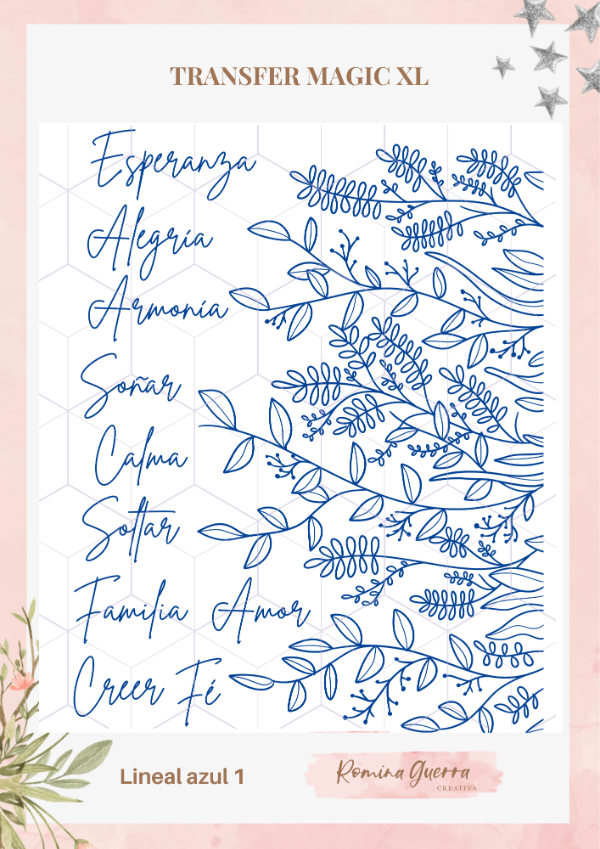 TRANSFER MAGIC XL
Esperanza
Alegría
Armonía
Soñar
Calma
Soltar
Familia Amor
Creer Fé
Lineal azul 1
Romina Guerra
CREATIVA